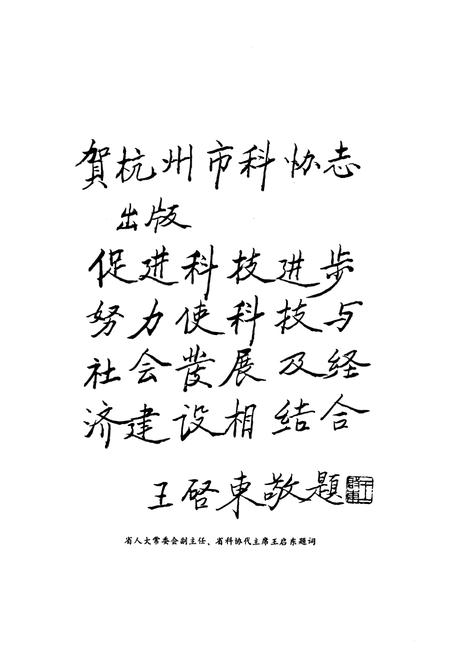 賀杭州市科协志
出版
促进科技进步
努力使科技与
社会發展及经
济建设相结合
王啓東敬題
省人大常委会副主任、省科协代主席王启东题词